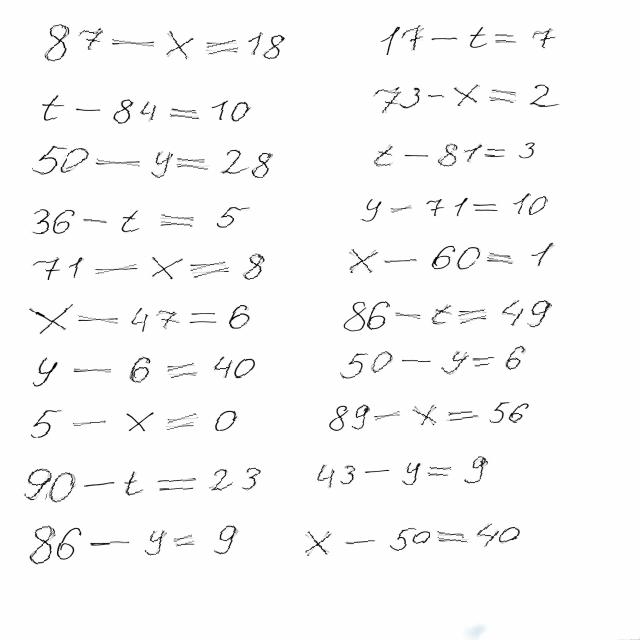 87 - x = 18
t - 84 = 10
50 - y = 28
36 - t = 5
71 - x = 8
x - 47 = 6
y - 6 = 40
5 - x = 0
90 - t = 23
86 - y = 9
17 - t = 7
73 - x = 2
t - 81 = 3
y - 71 = 10
x - 60 = 1
86 - t = 49
50 - y = 6
89 - x = 56
43 - y = 9
x - 50 = 40